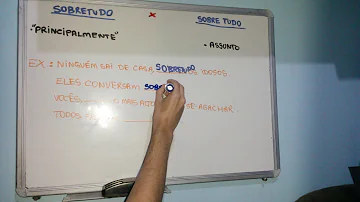 SOBRETUDO × SOBRE TUDO
"PRINCIPALMENTE"
- ASSUNTO
EX: NINGUÉM SAI DE CASA, SOBRETUDO OS IDOSOS
ELES CONVERSAM SOBRE
VOCÊS O MAIS
TODOS